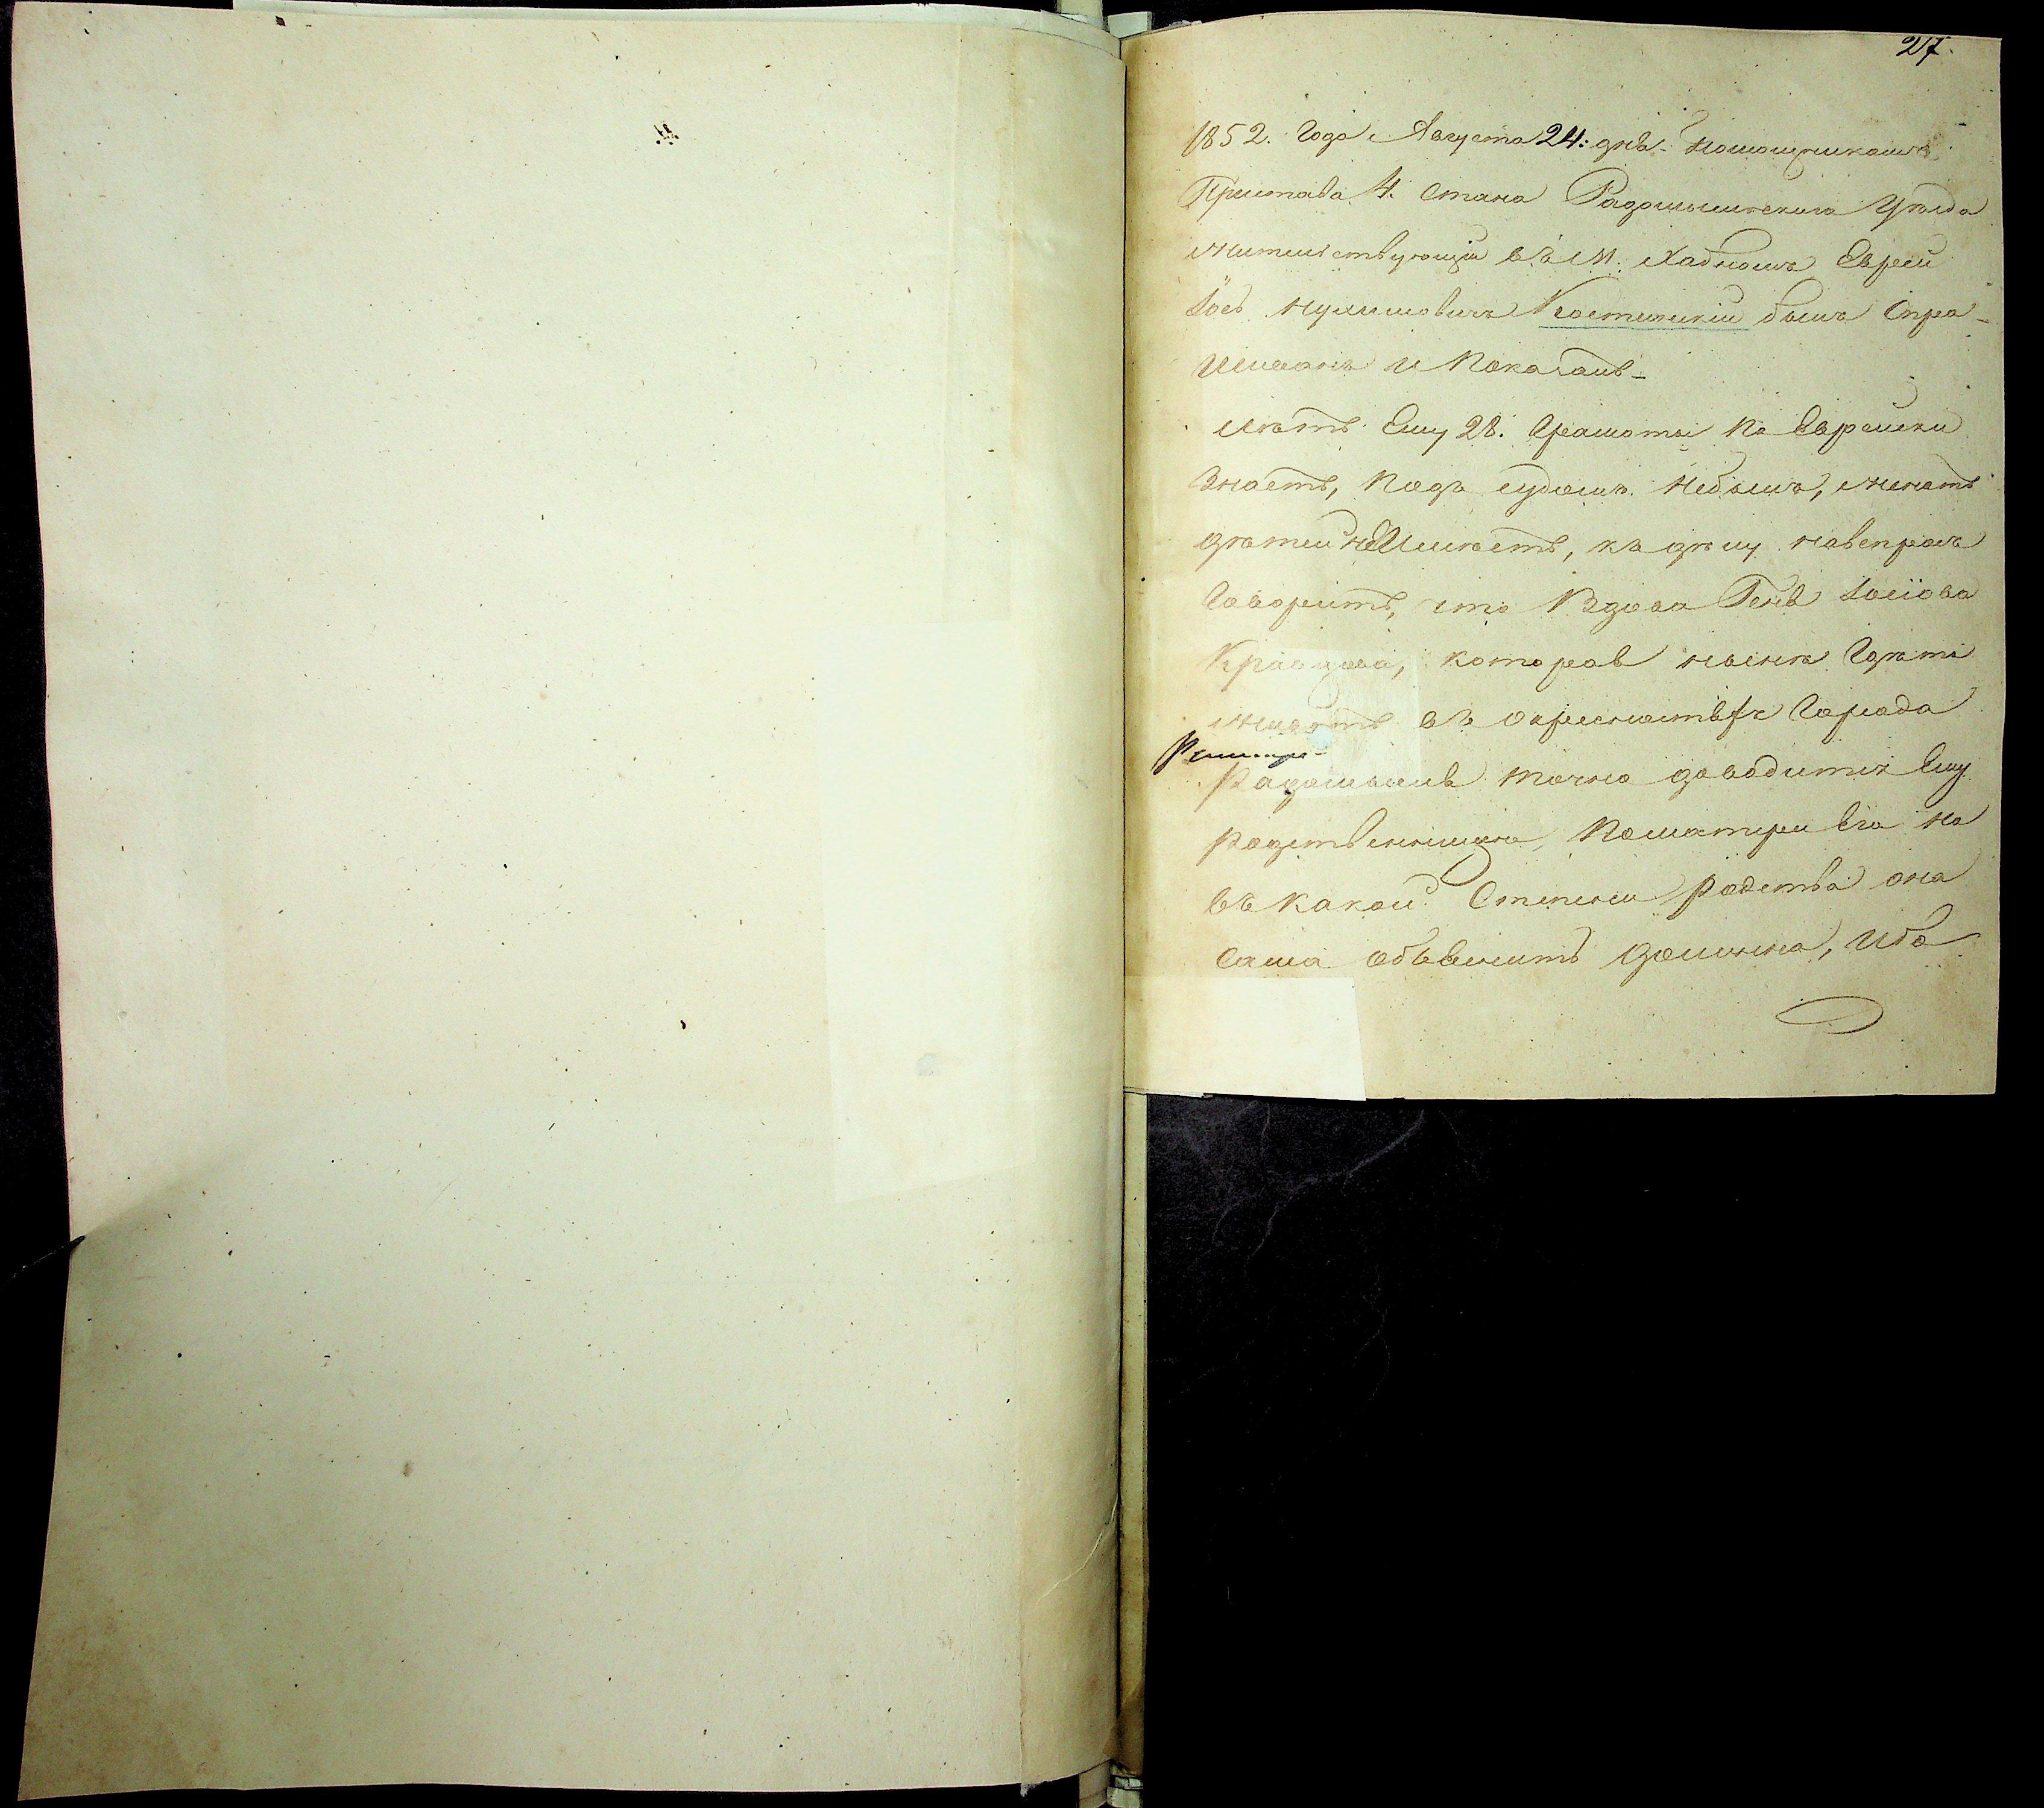 27.
1852. Года Августа 24: дня Помощникомъ
Пристава 4. Стана Радомысльскаго Уѣзда
жительствующій въ М. Хабномъ Еврей
Іось Костинскій былъ Спра-
шиванъ и Показалъ-
Лѣтъ Ему 28. Грамоты по Еврейски
Знаетъ, подъ судомъ Небылъ, женатъ
дѣтей неИмѣетъ, къ дѣлу
Говоритъ, что Вдова
Кравцова, которая нынѣ
живетъ въ окресностяхъ Города
Радомысля точно доводится Ему
родственница, Поматери Его но
въ какой Степени родства она
Сама объяснить должна, Ибо